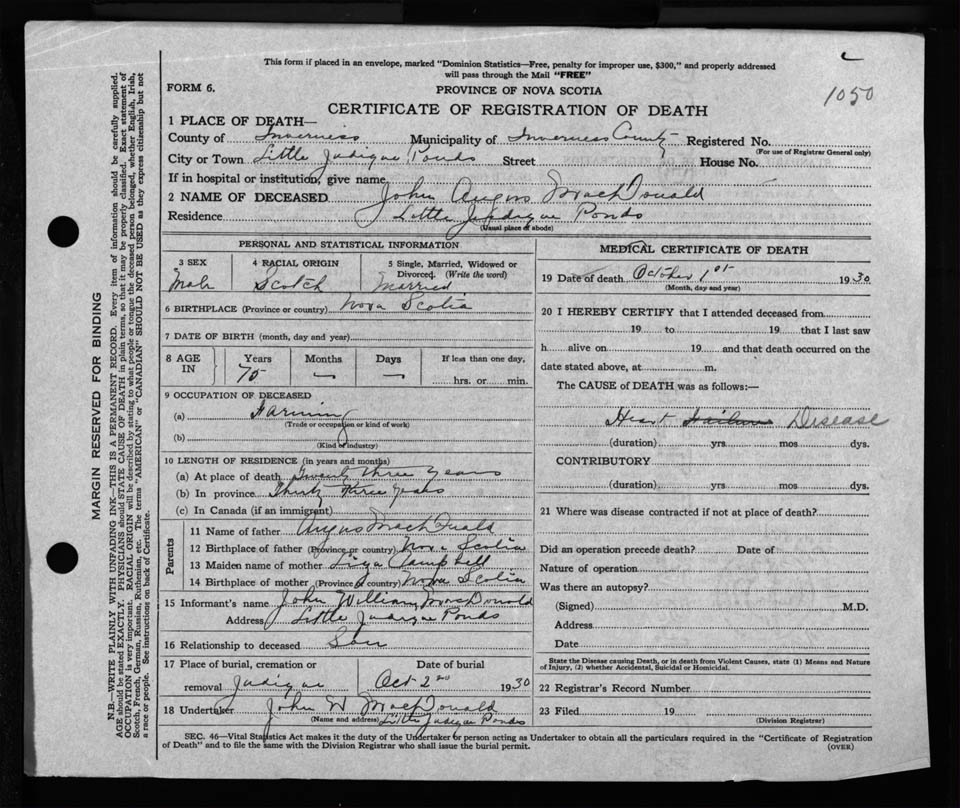 This form if placed in an envelope, marked "Dominion Statistics—Free, penalty for improper use, $300," and properly addressed
will pass through the Mail "FREE"
1050
FORM 6.
PROVINCE OF NOVA SCOTIA
CERTIFICATE OF REGISTRATION OF DEATH
1 PLACE OF DEATH—
County of Inverness Municipality of Inverness County Registered No.
(For use of Registrar General only)
City or Town Little Judique Ponds Street House No.
If in hospital or institution, give name
2 NAME OF DECEASED John Angus MacDonald
Residence Little Judique Ponds
(Usual place of abode)
PERSONAL AND STATISTICAL INFORMATION
3 SEX 4 RACIAL ORIGIN 5 Single, Married, Widowed or
Divorced. (Write the word)
Male Scotch Married
6 BIRTHPLACE (Province or country) Nova Scotia
7 DATE OF BIRTH (month, day and year)
8 AGE IN Years Months Days If less than one day,
75 — — hrs. or min.
9 OCCUPATION OF DECEASED
(a) Farming
(Trade or occupation or kind of work)
(b)
(Kind of industry)
10 LENGTH OF RESIDENCE (in years and months)
(a) At place of death Twenty three years
(b) In province Thirty three years
(c) In Canada (if an immigrant)
Parents
11 Name of father Angus MacDonald
12 Birthplace of father (Province or country) Nova Scotia
13 Maiden name of mother Campbell
14 Birthplace of mother (Province or country) Nova Scotia
15 Informant's name John William MacDonald
Address Little Judique Ponds
16 Relationship to deceased Son
17 Place of burial, cremation or Date of burial
removal Judique Oct 2nd 1930
18 Undertaker John W MacDonald
(Name and address) Little Judique Ponds
MEDICAL CERTIFICATE OF DEATH
19 Date of death October 1st 1930
(Month, day and year)
20 I HEREBY CERTIFY that I attended deceased from
19 to 19 that I last saw
h alive on 19 and that death occurred on the
date stated above, at m.
The CAUSE of DEATH was as follows:—
Heart Failure Disease
(duration) yrs. mos dys.
CONTRIBUTORY
(duration) yrs. mos. dys.
21 Where was disease contracted if not at place of death?
Did an operation precede death? Date of
Nature of operation
Was there an autopsy?
(Signed) M.D.
Address
Date
State the Disease causing Death, or in death from Violent Causes, state (1) Means and Nature
of Injury, (2) whether Accidental, Suicidal or Homicidal.
22 Registrar's Record Number
23 Filed 19
(Division Registrar)
SEC. 46—Vital Statistics Act makes it the duty of the Undertaker or person acting as Undertaker to obtain all the particulars required in the "Certificate of Registration
of Death" and to file the same with the Division Registrar who shall issue the burial permit.
(OVER)
MARGIN RESERVED FOR BINDING
N.B.—WRITE PLAINLY WITH UNFADING INK—THIS IS A PERMANENT RECORD. Every item of information should be carefully supplied.
AGE should be stated EXACTLY. PHYSICIANS should STATE CAUSE OF DEATH in plain terms, so that it may be properly classified. Exact statement of
OCCUPATION is very important. RACIAL ORIGIN will be described by stating to what people or tongue the deceased person belonged, whether English, Irish,
Scotch, French, German, Russian, Ruthenian, etc. The terms "AMERICAN" or "CANADIAN" SHOULD NOT BE USED as they express citizenship but not
a race or people. See instructions on back of Certificate.